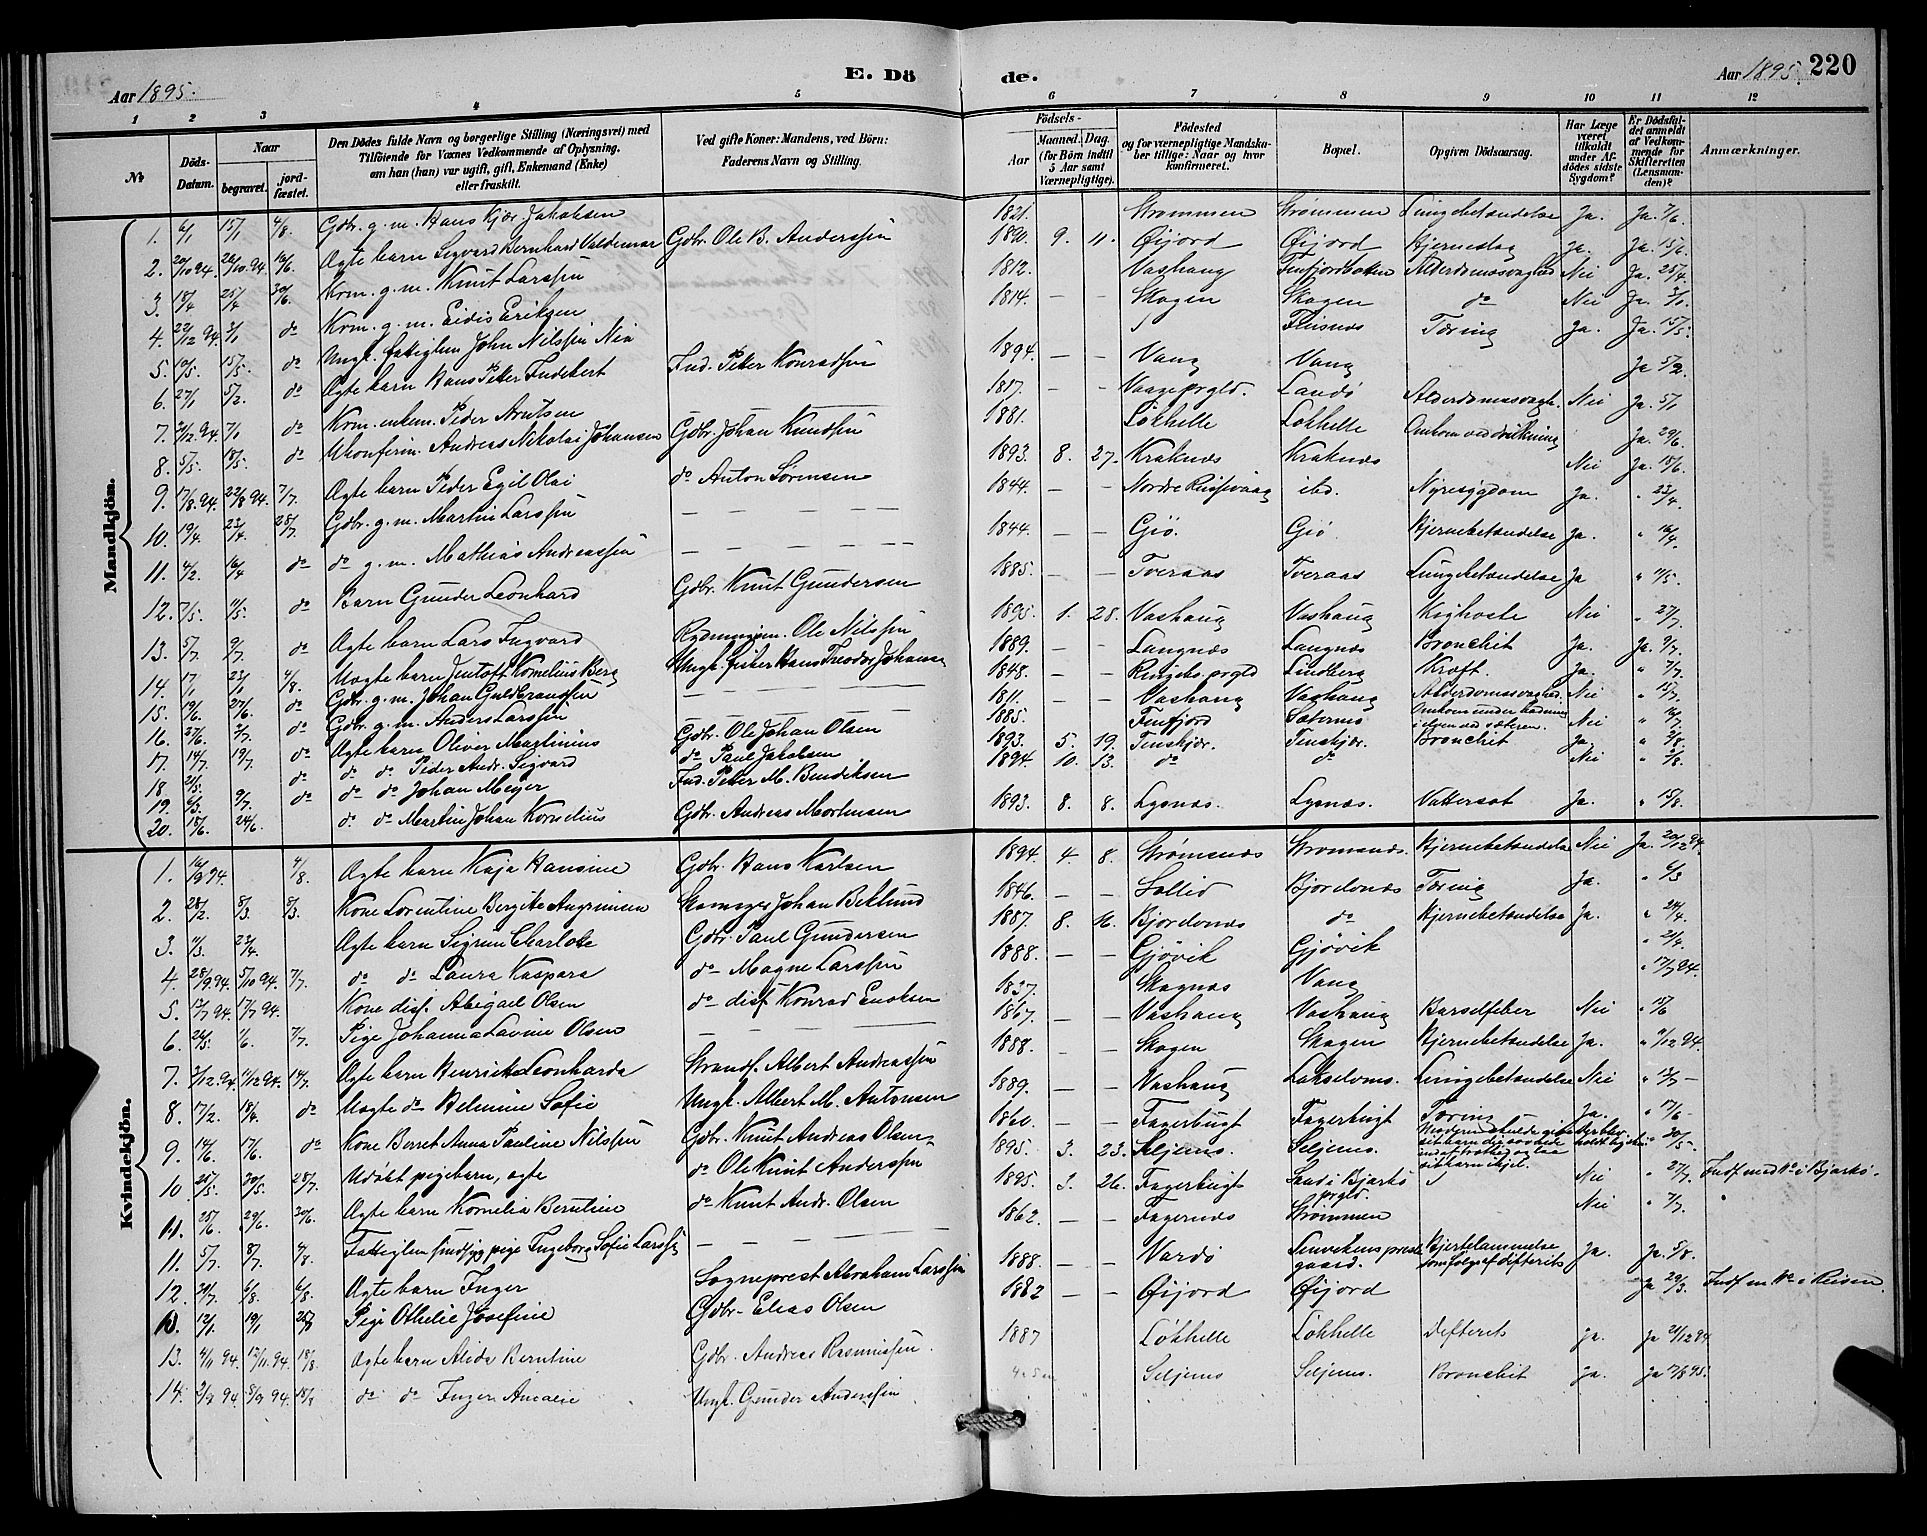 E. Döde.
Aar 1895.
Aar 1895. 220
1 2 3 4 5 6 7 8 9 10 11 12
№
Döds-Datum.
Naar begravet. jordfæstet.
Den Dödes fulde Navn og borgerlige Stilling (Næringsvei) med Tilföiende for Voxnes Vedkommende af Oplysning, om han (hun) var ugift, gift, Enkemand (Enke) eller fraskilt.
Ved gifte Koner: Mandens, ved Börn: Faderens Navn og Stilling.
Födsels- Aar Maaned. Dag. (for Börn indtil 5 Aar samt Værnepligtige).
Födested og for værnepligtige Mandskaber tillige: Naar og hvor konfirmeret.
Bopæl.
Opgiven Dödsaarsag.
Har Læge været tilkaldt under Afdödes sidste Sygdom?
Er Dödsfaldet anmeldt af Vedkommende for Skifteretten (Lensmanden)?
Anmærkninger.
Mandkjön.
1. 6/1 15/1 4/8. Gdbr. g. m. Hans Kjær Jakobsen 1821. Strømmen Strømmen Lungebetændelse Ja. Ja. 7/6.
2. 20/10 94. 26/10 94. 16/6. Ægte barn Sigvard Bernhard Valdemar Gdbr. Ole B. Anderssen 1890. 9. 11. Øijord Øijord Hjerneslag Ja. Ja. 15/6.
3. 18/4 25/4 30/6. Kom. g. m. Knut Larssen 1812. — — Vashaug Finfjordbotten Alderdomssvaghed Nei Ja. 25/4.
4. 22/12 94. 3/1 do Kom. g. m. Eidis Eriksen 1814. — — Skogen Skogen do Nei Ja. 3/1.
5. 10/5. 15/5. do Ungk. fattiglem John Nilssen Nia Finsnes Tæring Ja. Ja. 15/5.
6. 27/1 5/2. do Ægte barn Hans Peter Indebert Ind. Peter Konradsen 1894. — — Vang Vang Ja 5/2.
7. 3/12 94. 7/1 do Kom. enkem. Peder Arntsen — 1817. — — Vaage prgld. Sandø Alderdomssvagh. Nei Ja. 5/1
8. 5/5. 18/5. do Ukonfirm. Andreas Nikolai Johansen Gdbr. Johan Knudsen 1881. Løkhelle Løkhelle Omkom ved drukning Ja. 29/6.
9. 17/8 94. 22/8 94. 7/7 Ægte barn Peder Egil Olai do Anton Sørensen 1893. 8. 27. Kraknes Kraknes Nei Ja. 15/6.
10. 19/4. 23/4. 28/7. Gdbr. g. m. Martin Larssen — 1844. — — Nordre Reisvaag ibd. Nyresygdom Ja. " 23/4.
11. 4/2. 16/4 do do g. m. Mathias Andreassen — 1844. — — Giø. Giø Hjernebetændelse Ja. " 16/4.
12. 7/5. 11/5. do Barn Gunder Leonhard Gdbr. Knut Gundersen 1885. — — Tveraas Tveraas Lungebetændelse Ja " 11/5.
13. 5/7. 9/7. do Ægte barn Lars Ingvard Rydningsm. Ole Nilssen 1895. 1. 28. Vashaug Vashaug Kighoste Nei " 27/7.
14. 17/1 23/1 4/8. Uægte barn Jentoft Kornelius Berg Ungk. fisker Hans Theodor Johansen 1889. — — Langnæs Langnæs Bronchit Ja. Ja. 9/7.
15. 19/6. 27/6. do Gdbr. g. m. Johan Guldbrandsen — 1848. — — Ringebo prgld Lindberg Kræft. Ja. " 7/7.
16. 27/6. 2/7. do Gdbr. g. m. Anders Larssen — 1811. — — Vashaug Vashaug Alderdomssvaghed. Nei " 15/7.
17. 14/7. 19/7. do Ægte barn Oliver Martinius Gdbr. Ole Johan Olsen 1885. Finfjord Sæternes Omkom under badning i elven ved sæteren. Nei " 16/7.
18. 21/5. do do do Peder Andr. Sigvard do Paul Jakobsen 1893. 5. 19. Tenskjær. Tenskjær. Bronchit Ja. " 2/8.
19. 6/3. 9/7. do do do Johan Meyer Ind. Peter M. Bendiksen 1894. 10. 13. do do Nei " 2/8.
20. 18/6. 24/6. do do Martin Johan Kornelius Gdbr. Andreas Mortensen 1893. 8. 8. Lysnæs. Lysnæs. Vattersot Ja. " 15/8.
Kvindekjön.
1. 16/9 94. 4/8. Ægte barn Kaja Hansine Gdbr. Hans Karlsen 1894. 4. 8. Strømsnæs Strømsnæs. Hjernebetændelse Nei Ja. 20/12 94.
2. 28/2. 8/3. 8/3. Kone Lorentine Bergitte Angrimsen Skomager Johan Beklund 1846. — — Sollid Bjorelvnæs Tæring Ja. " 6/3
3. 11/3. 23/4. Ægte barn Sigrun Charlotte Gdbr. Paul Gundersen 1887. 8. 16. Bjorelvnæs do Hjernebetændelse Ja. " 24/4.
4. 28/9 94. 5/10 94. 7/7. do do Laura Kaspara do Magne Larssen 1888. — — Gjøvik Gjøvik " 21/4.
5. 13/7 94. 17/7 94. Kone diss. Abigael Olsen do diss Konrad Enoksen 1837. Skognæs Vang " 17/7 94.
6. 24/5. 1/6. 7/7. Pige Johanna Lavine Olsen — 1867. — — Vashaug Vashaug Barselfeber Nei " 15/6
7. 3/12 94. 11/12 94. 14/7. Ægte barn Henriette Leonharda Strands. Albert Andreassen 1888. — — Skogen Skogen Hjernebetændelse Ja. " 11/12 94.
8. 17/2. 18/4. do Uægte do Helmine Sofie Ungk. Albert M. Antonsen 1889. — — Vashaug Lakselvnes. Lungebetændelse Nei " 13/7 —
9. 14/6. 17/6. do Kone Berret Anna Pauline Nilssen Gdbr. Knut Andreas Olsen 1860. — — Fagerbugt Fagerbugt Tæring Ja. " 17/6 —
10. 25/5. 30/5. 28/7. Udøbt pigebarn, ægte do Ole Knut Anderssen 1895. 3. 23. Seljenes. Seljenes. " 30/5 —
11. 25/6. 29/6. 30/6. Ægte barn Kornelia Berntine do Knut Andr. Olsen 1895. 3. 26. Fagerbugt Sand i Bjarkø prgld. Nei " 27/7. Indf. med No i Bjarkø.
11. 5/7. 8/7. 4/8. Fattiglem sindssyg pige Ingeborg Sofie Larssen — 1862. — — Fagernæs Strømmen Nei " 7/7.
12. 30/7. 6/8. 6/8. Ægte barn Inger Sogneprest Abraham Larssen 1888. — — Vardø Lenvikens prestegaard. Hjertelammelse som følge af difterits Ja. Ja. 5/8.
12/1. 19/1 Pige Othelie Josefine Gdbr. Elias Olsen 1882 — — Øijord Øijord Ja 29/3. Indf. m No i Reisen.
13. 4/11 94. 12/11. 94. 18/8. Ægte barn Alida Berntine Gdbr. Andreas Rasmussen 1887 Løkhelle Løkhelle Difterits Ja. Ja 21/12 94
14. 2/9 94. 8/9 94. do do Inger Amalie Ungk. Gunder Anderssen Seljenes Seljenes. Bronchit Ja. Ja 17/8 95.